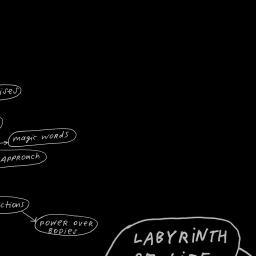 magic words
APPROACH
POWER OVER
BODIES
LABYRiNTH